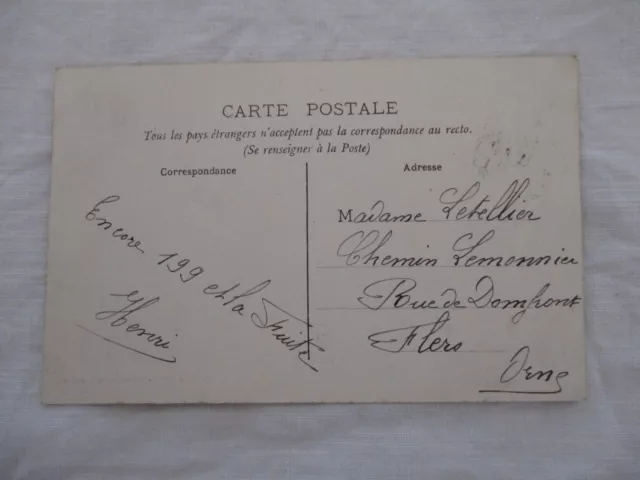 CARTE POSTALE
Tous les pays étrangers n'acceptent pas la correspondance au recto.
(Se renseigner à la Poste)
Correspondance
Encore 199 et la Fuite
Henri
Adresse
Madame Letellier
Chemin Lemonnier
Rue de Domfront
Flers
Orne